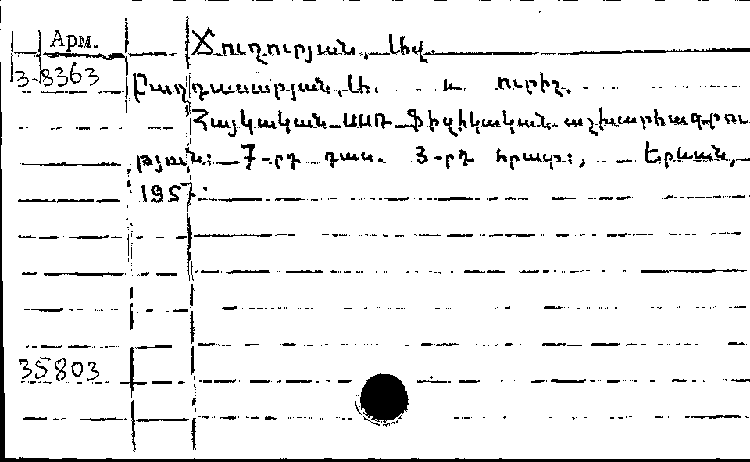 Арм.
3-8363
Ճուղուրյան, Լիզ
Բաղդասարյան, Ա. և ուրիշ.
Հայկական ՍՍՌ Ֆիզիկական աշխարհագրու
թյուն: 7-րդ դաս. 3-րդ հրատ:, Երևան,
195
35803